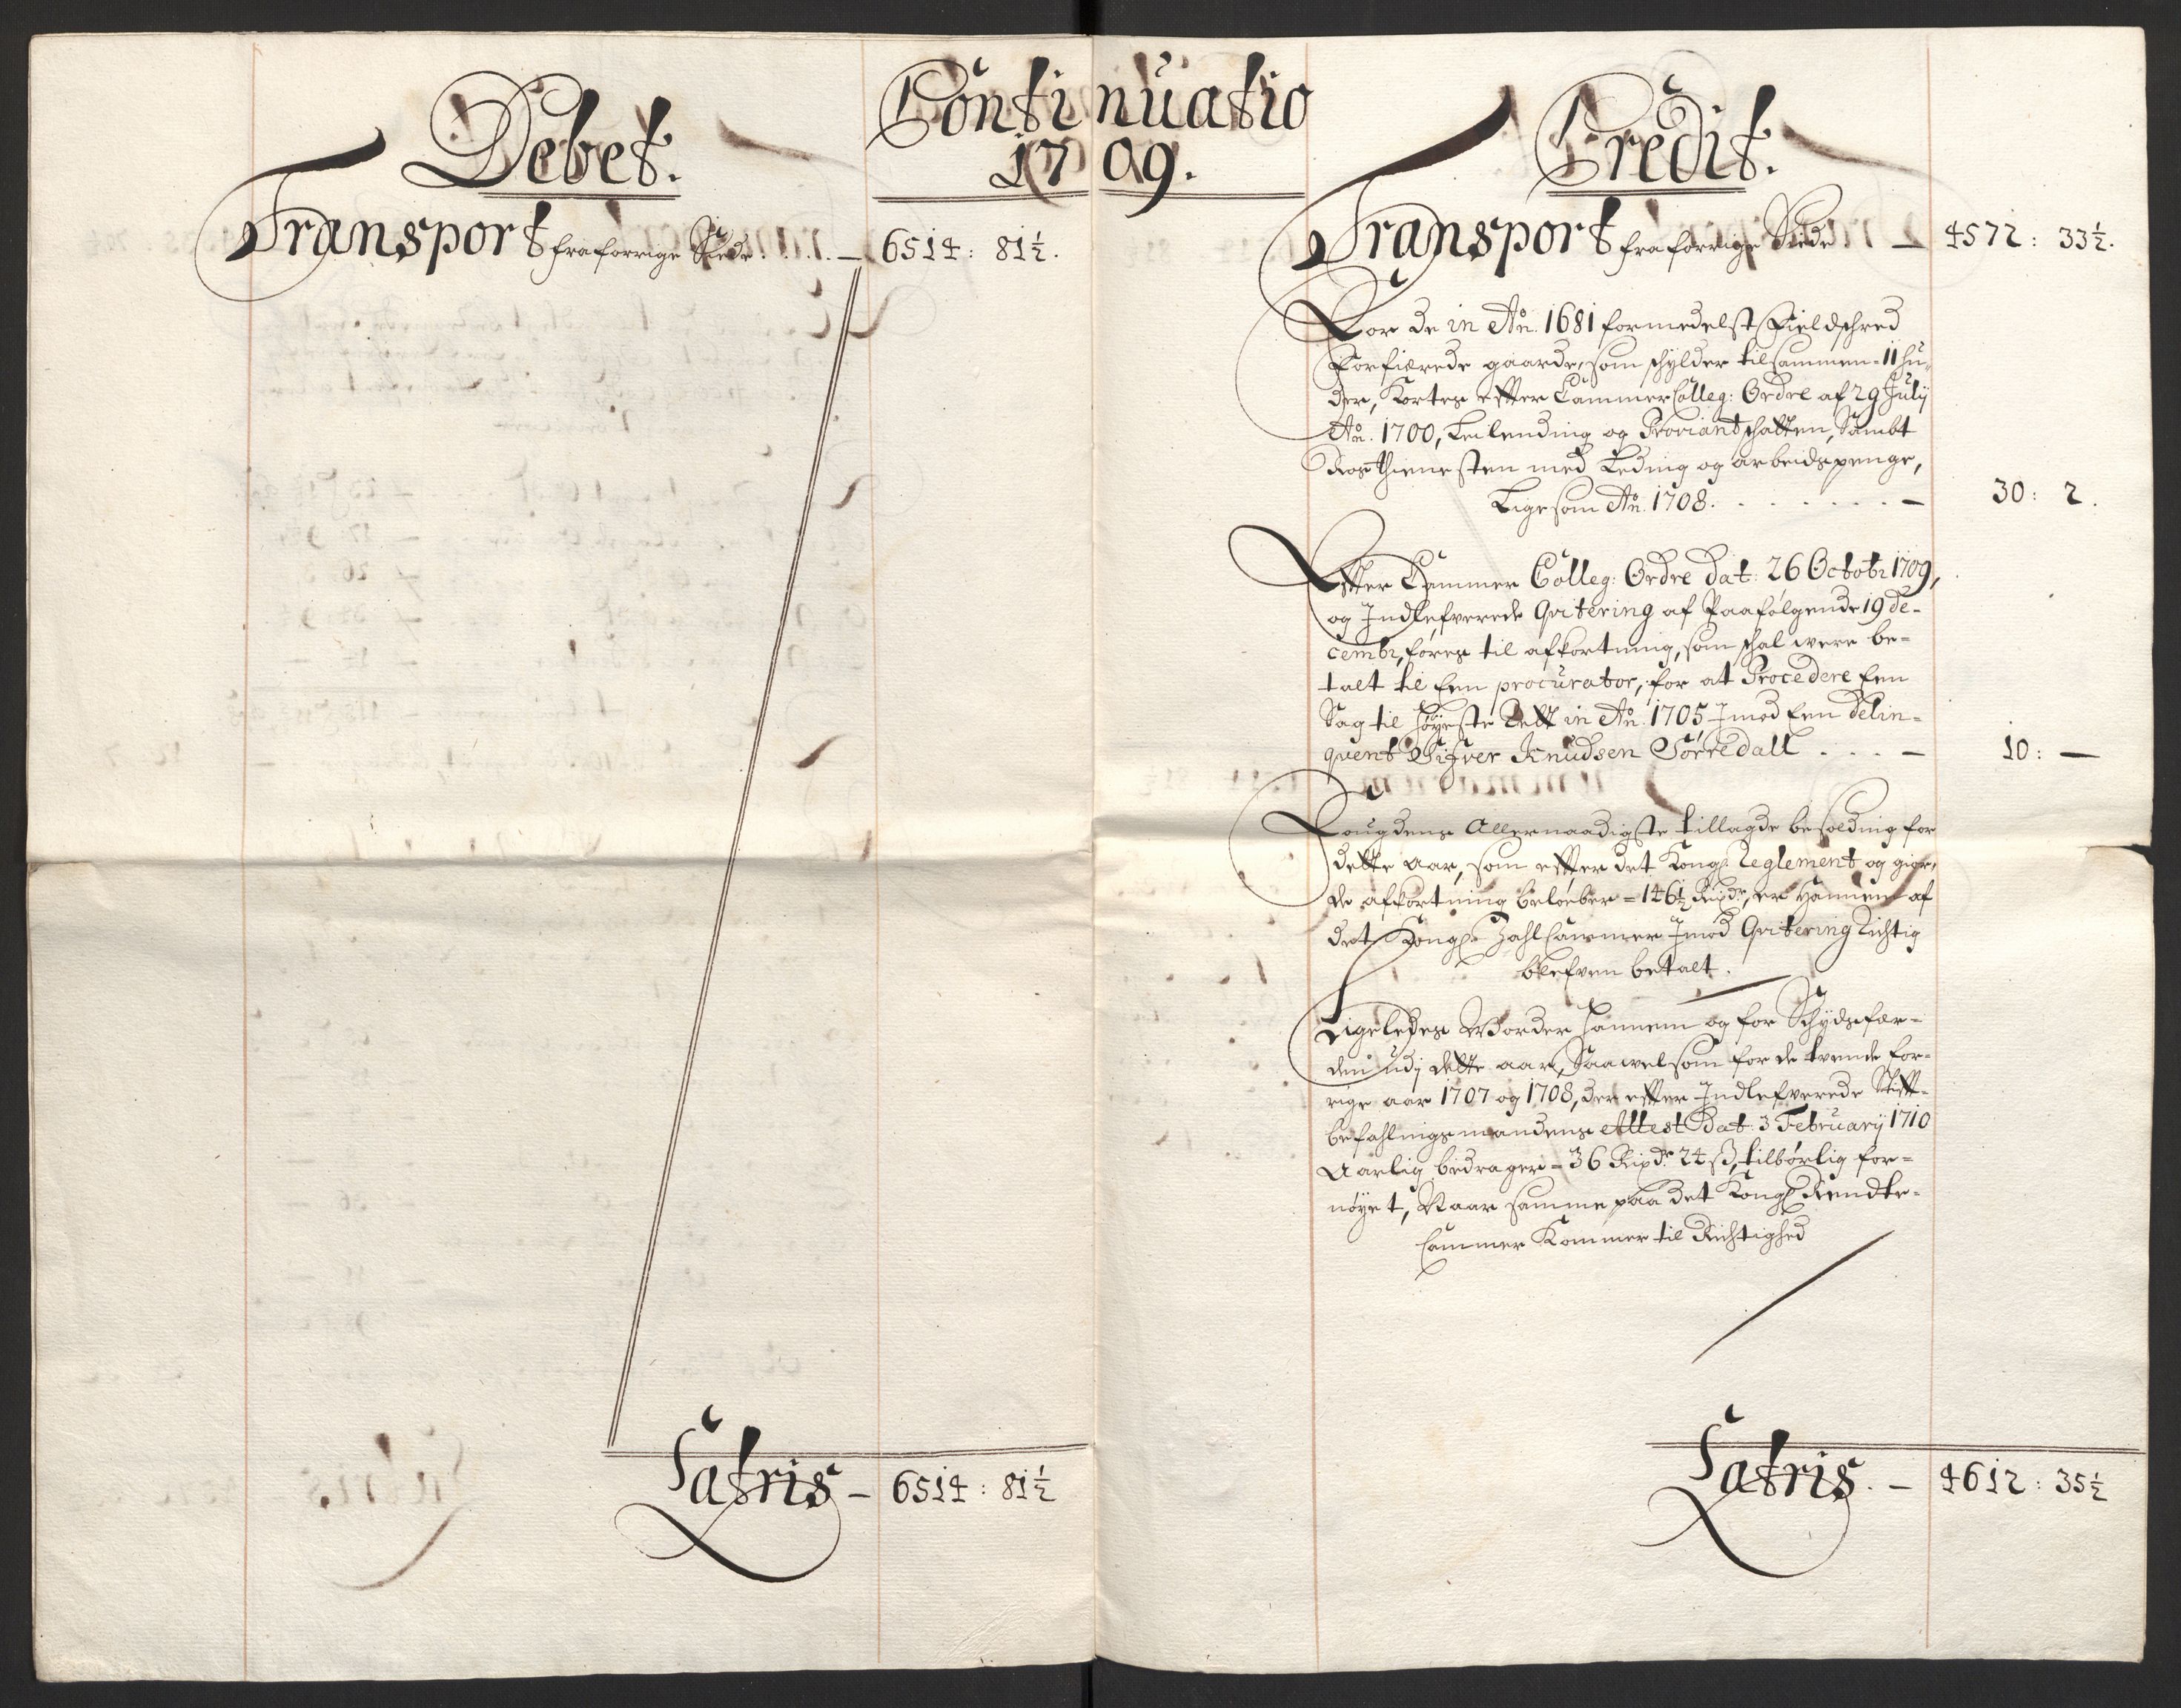 Continuatio
1709.
Debet.
Transport fra forrige Siede . . . . — 6514 : 81½.
Latris — 6514 : 81½
Credit.
Transport fra forrige Siede — 4572 : 33½.
For de in Ao. 1681 formedelst Fieldschred
forfierede gaarde, som schylder tilsammen - 11 hu-
der, Kortes effter Cammer Colleg: Ordre af 29 Julij
Ao. 1700, Leilending og Proviantschatten, Sambt
Rosthienesten med Leding og arbeidspenge,
Ligesom Ao. 1708. . . . . . . — 30 : 2.
Effter Cammer Colleg: Ordre dat: 26 Octobr 1709,
og Indlefverede Qvitering af Paafølgende 19 de-
cembr, føres til afkortning, som schal were be-
talt til Een procurator, for at Procedere Een
Sag til høyeste Rett in Ao. 1705 Imod Een delin-
qvent Sifver Knudsen Sørredall . . . — 10 : —
Fougdens Allernaadigste tillagde besolding for
dette aar, som effter det Kongl. Reglement og gior-
de afkortning beløeber = 146½ Rixdr, er hannem af
det Kongl. Zahlcammer Imod Qvitering Richtig
blefven betalt.
Ligeledes Worder hannem og for Schydsfær-
den udj dette aar, Saavelsom for de tvende for-
rige aar 1707 og 1708, der effter Indlefverede Stifft-
befahlingsmandens Attest dat: 3 February 1710
Aarlig bedrager = 36 Rixdr. 24 ß, tilbørlig for-
nøyet, Naar samme paa det Kongl. Rendte-
Cammer Kommer til Richtighed
Latris. — 4612 : 35½